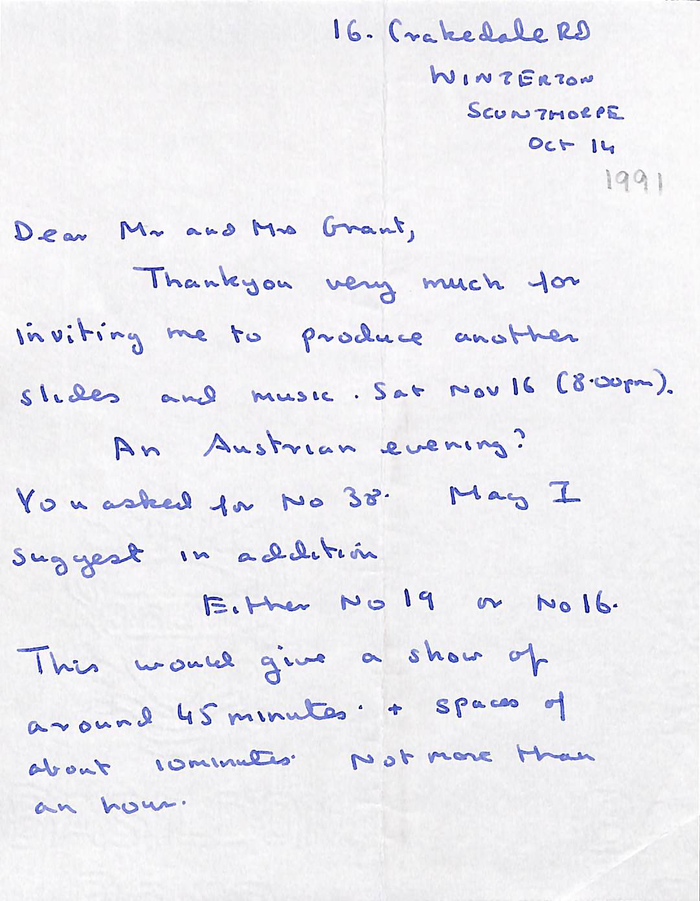 16. Crakedale RD
WINTERTON
SCUNTHORPE
Oct 14
1991
Dear Mr and Mrs Grant,
Thankyou very much for
inviting me to produce another
slides and music. Sat Nov 16 (8.00pm).
An Austrian evening?
You asked for No 38. May I
suggest in addition
Either No 19 or No 16.
This would give a show of
around 45 minutes. + spaces of
about 10 minutes. Not more than
an hour.